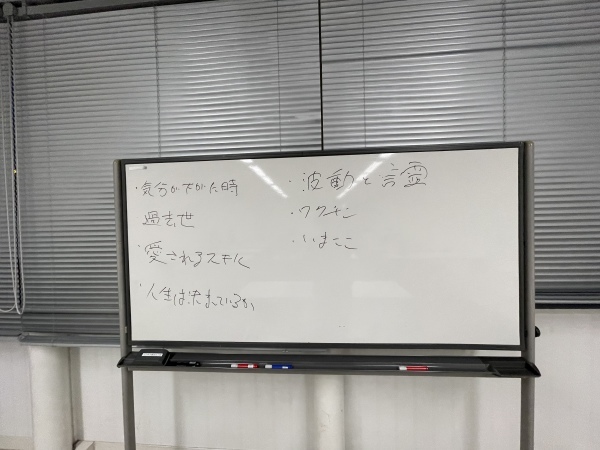 ・気分が下がった時
過去世
・愛されるスキル
・人生は決まっているか
・波動と言霊
・ワクチン
・いまここ